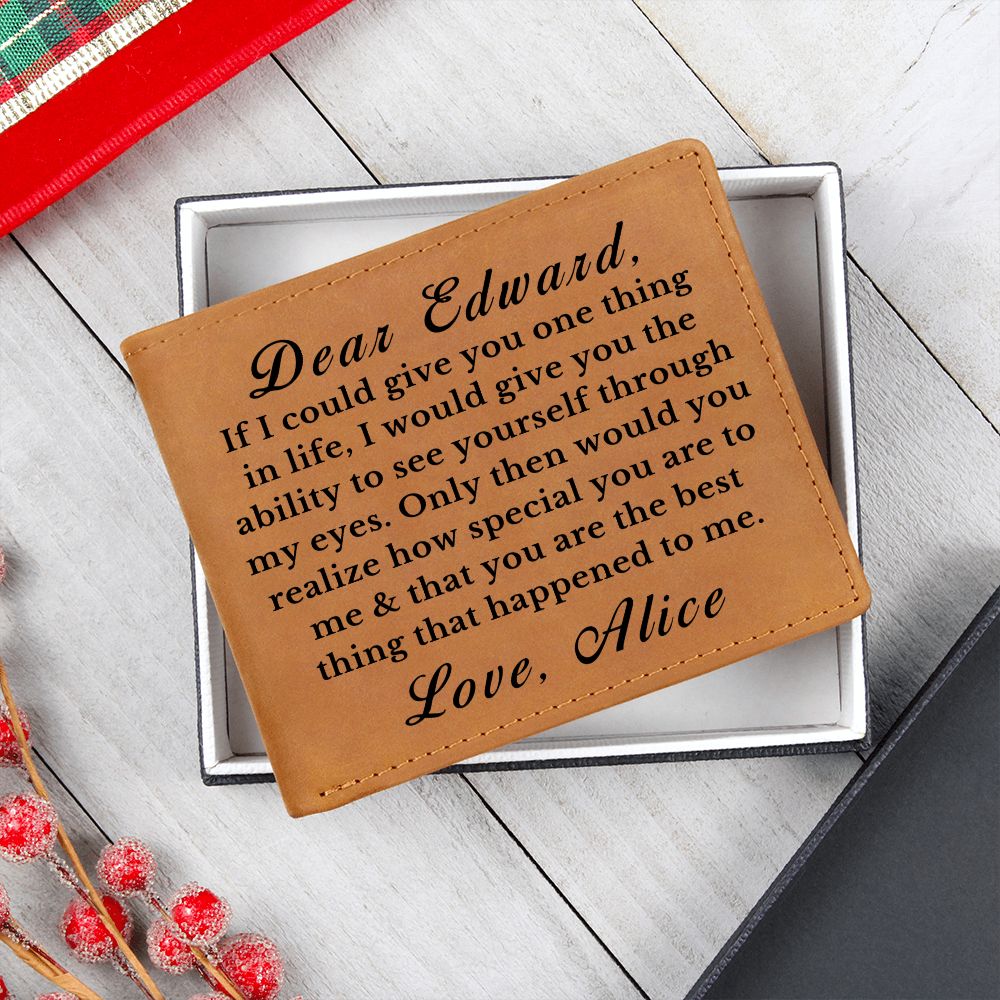 Dear Edward,
If I could give you one thing
in life, I would give you the
ability to see yourself through
my eyes. Only then would you
realize how special you are to
me & that you are the best
thing that happened to me.
Love, Alice